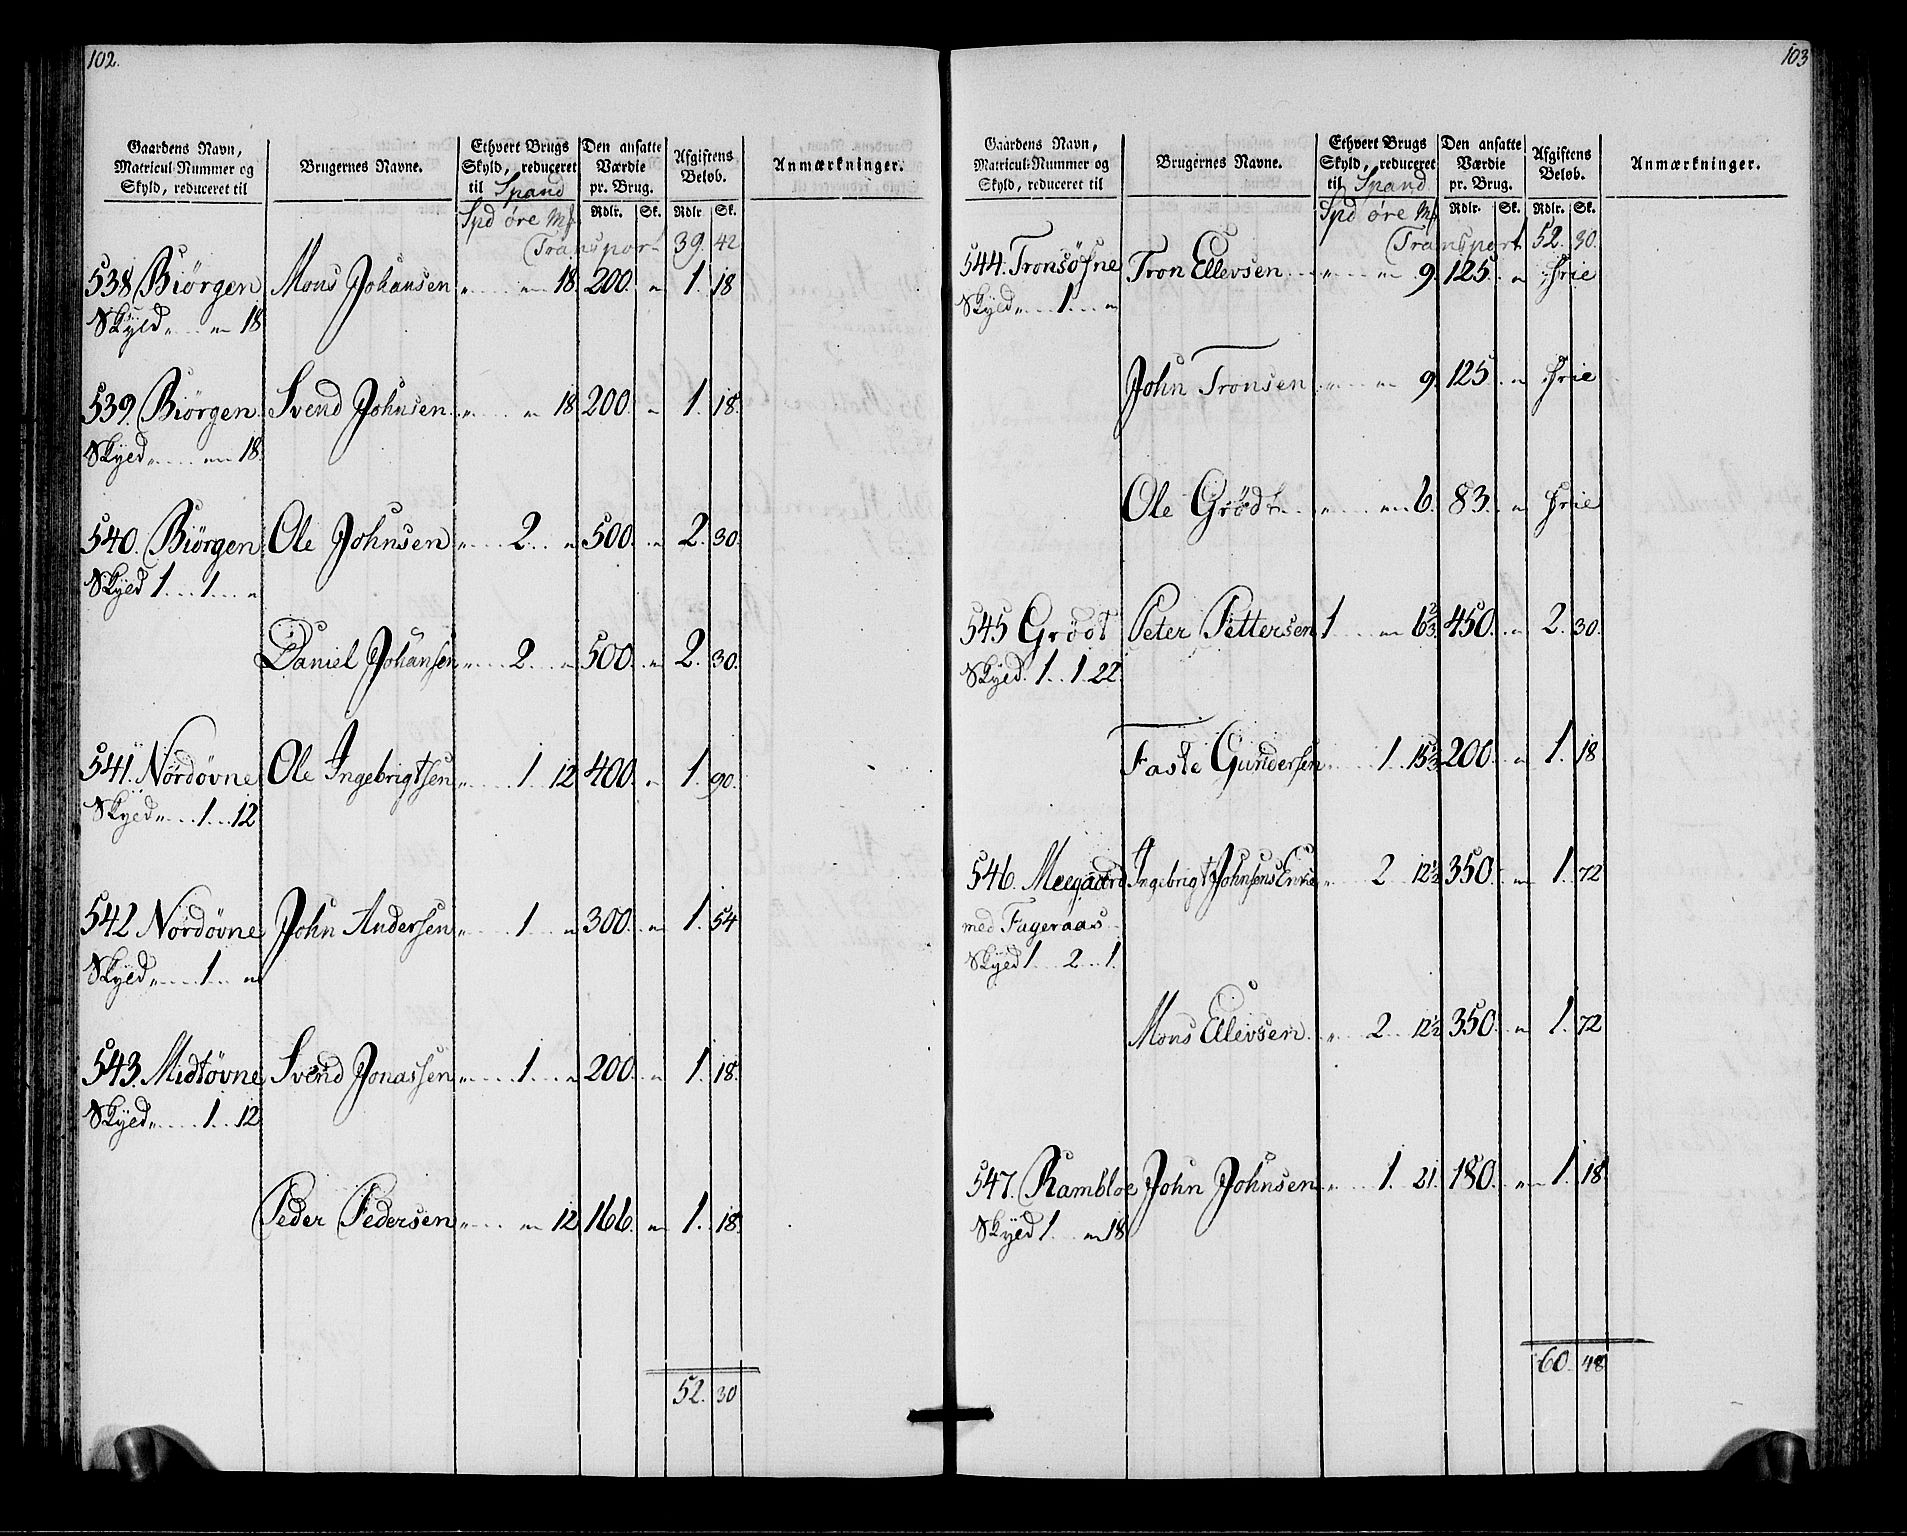 102.
Gaardens Navn, Matricul-Nummer og Skyld, reduceret til
Brugernes Navne.
Ethvert Brugs Skyld, reduceret til Spand
Den ansatte Værdie pr. Brug.
Afgiftens Beløb.
Anmærkninger.
Spd øre Mk Rdlr. Sk. Rdlr Sk.
Transport 39. 42
538 Biörgen Mons Johansen „ „ 18. 200. „ 1. 18
Skyld „ „ 18
539. Biörgen Svend Johnsen „ „ 18 200. „ 1. 18.
Skyld „ „ 18.
540. Biörgen Ole Johnsen „ 2. „ 500. „ 2. 30.
Skyld 1 1 „
Daniel Johansen „ 2. „ 500. „ 2. 30.
541. Nordövne Ole Ingebrigtsen „ 1 12 400. „ 1. 90.
Skyld „ 1 12
542 Nordövne John Andersen „ 1 „ 300. „ 1. 54
Skyld „ 1 „
543. Midtövne Svend Jonassen „ 1 „ 200. „ 1. 18.
Skyld „ 1 12
Peder Pedersen „ „ 12 166. „ 1. 18.
52. 30
103
Gaardens Navn, Matricul-Nummer og Skyld, reduceret til
Brugernes Navne.
Ethvert Brugs Skyld, reduceret til Spand
Den ansatte Værdie pr. Brug.
Afgiftens Beløb.
Anmærkninger.
Spd øre Mk Rdlr. Sk. Rdlr. Sk.
Transport 52. 30.
544. Tronsöfne Tron Ellevsen „ „ 9. 125. „ frie
Skyld „ 1 „
John Tronsen „ „ 9. 125 „ frie
Ole Grödt „ „ 6. 83. „ frie
545 Grööt Peter Pettersen 1 „ 6 2/3 450. „ 2. 30.
Skyld 1 1 22.
Faste Gundersen „ 1 15 1/3 200. „ 1. 18
546. Meegaard Ingebrigt Johnsens Enke „ 2 12 1/2 350. „ 1. 72
med Fageraas
Skyld 1 2 1.
Mons Ellevsen „ 2 12 1/2 350. „ 1. 72
547. Rambloe John Johnsen „ 1. 21. 180. „ 1. 18
Skyld 1 „ 18
60. 48